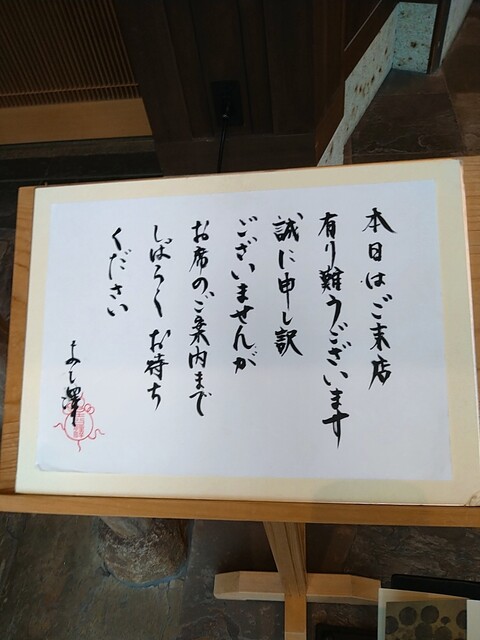 本日はご来店
有り難うございます
誠に申し訳
ございませんが
お席のご案内まで
しばらくお待ち
ください
よし澤